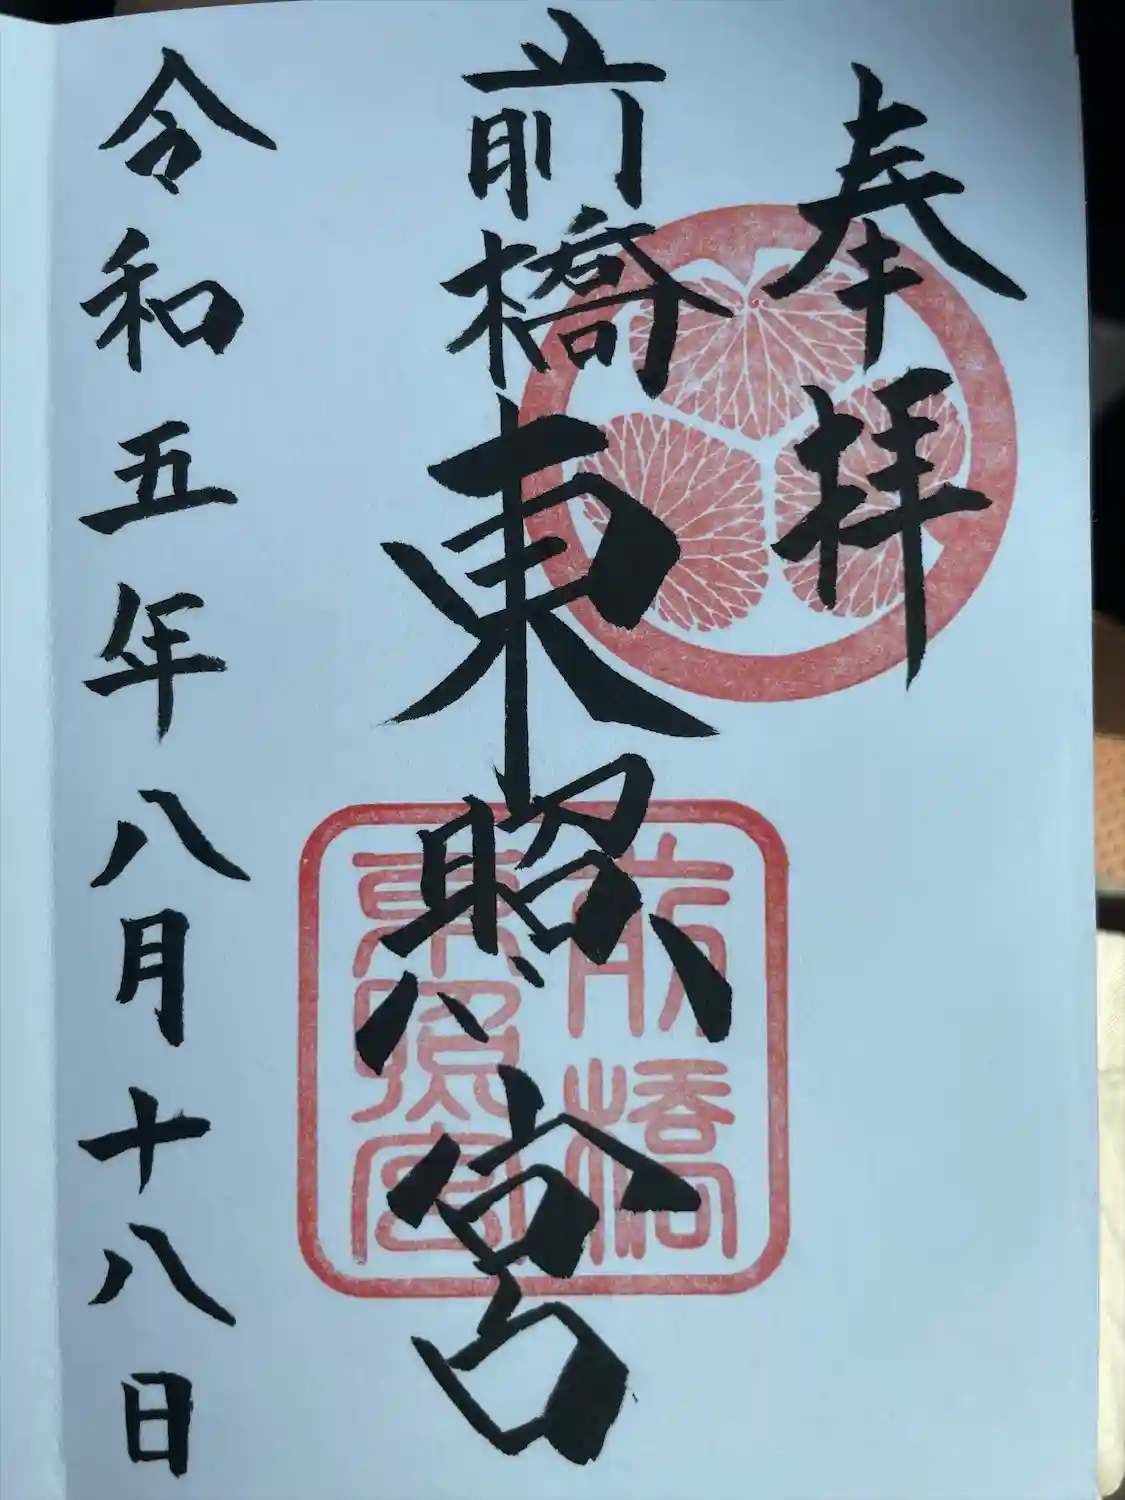 奉拝
前橋東照宮
令和五年八月十八日
前橋
東照宮